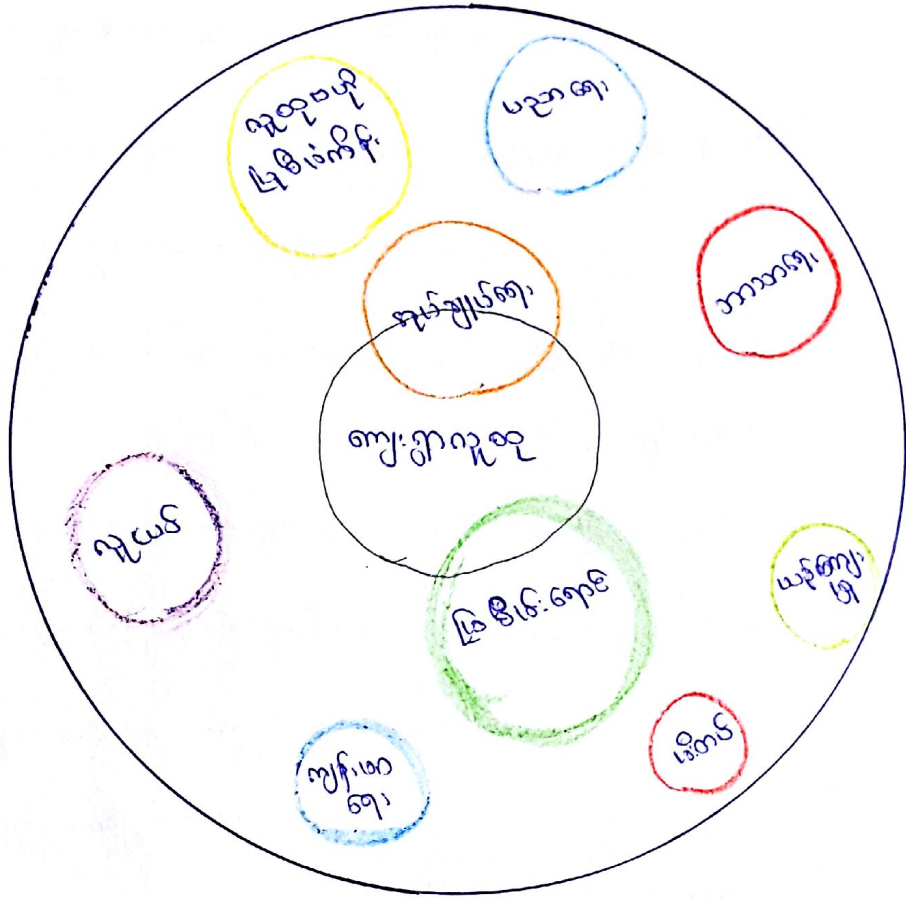 လူထုဗဟို
ပြုစီမံကိန်း
ပညာရေး
ဘာသာရေး
အုပ်ချုပ်ရေး
ကျေးရွာလူထု
လူငယ်
မြစိမ်းရောင်
ယဉ်ကျေး
မှု
မီးသတ်
ကျန်းမာ
ရေး